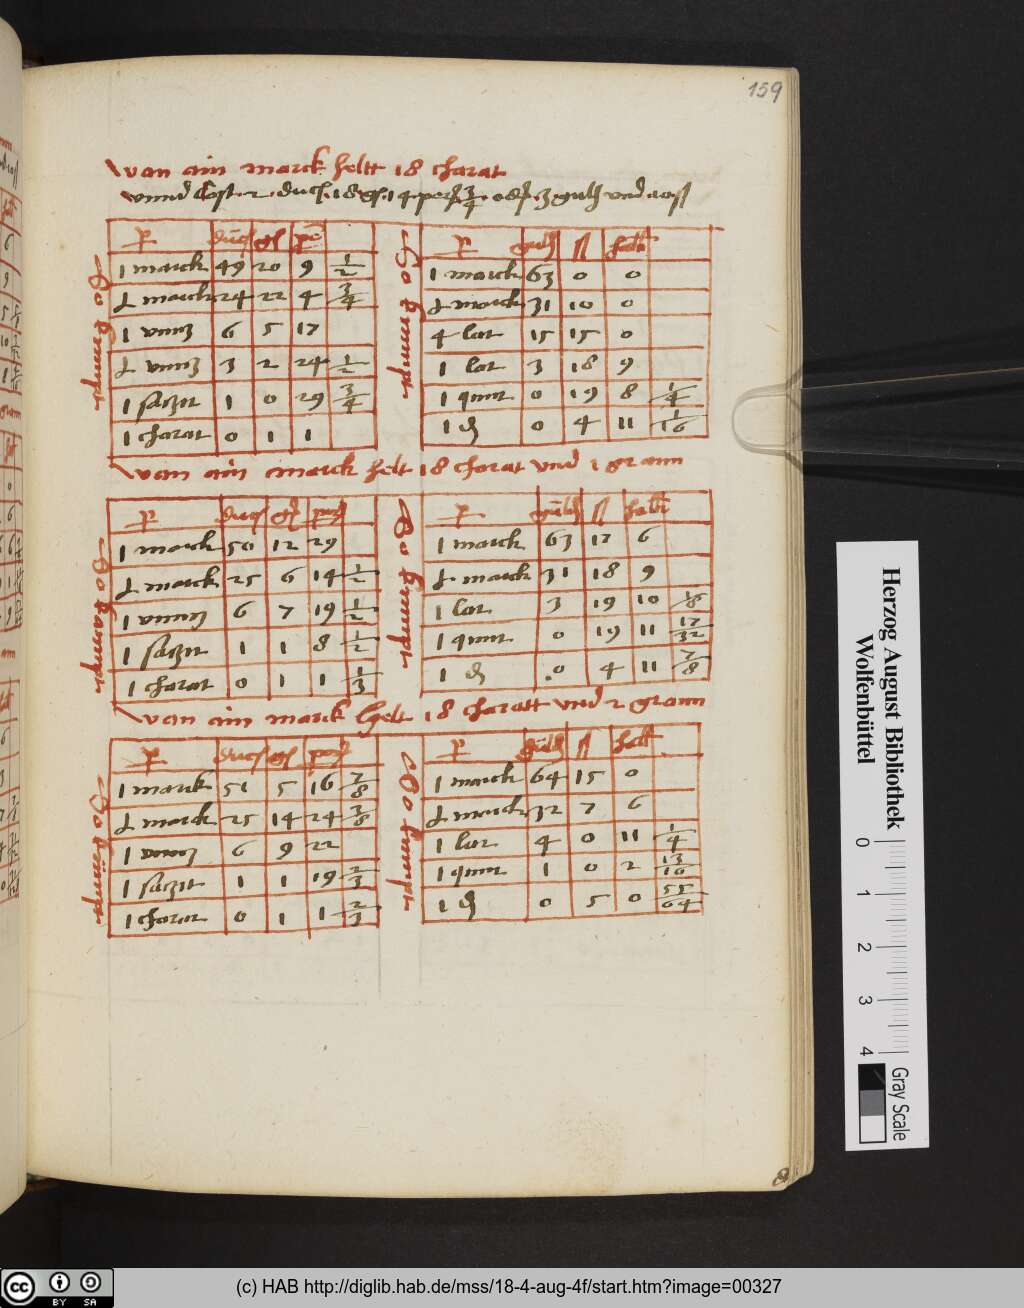 159
van ain marck heltt 18 charat
vnnd Cost 2 duc 18 gſ 14 3/4 oder 3 guld vnd 10 ſſ
So kumpt
p duc gſ pe
1 marck 49 20 9 1/2
½ marck 24 22 4 3/4
1 vnntz 6 5 17
½ vnntz 3 2 24 1/2
1 sachzit 1 0 29 3/4
1 charat 0 1 1
So kumpt
p guld ſſ hallr
1 marck 63 0 0
½ marck 31 10 0
4 lot 15 15 0
1 lot 3 18 9
1 quint 0 19 8 1/4
1 ₰ 0 4 11 1/16
van ain marck helt 18 charat vnd 1 grann
So kumpt
p duc gſ
1 marck 50 12 29
½ marck 25 6 14 1/2
1 vnntz 6 7 19 1/2
1 sachzit 1 1 8 1/2
1 charat 0 1 1 1/3
So kumpt
p guld ſſ hallr
1 marck 63 17 6
½ marck 31 18 9
1 lot 3 19 10 1/8
1 quint 0 19 11 17/32
1 ₰ 0 4 11 7/8
van ain marck helt 18 charatt vnd 2 grann
So kumpt
p duc gſ
1 marck 51 5 16 7/8
½ marck 25 14 24 3/8
1 vnntz 6 9 22
1 sachzit 1 1 19 2/3
1 charat 0 1 1 2/3
So kumpt
p guld ſſ hallr
1 marck 64 15 0
½ marck 32 7 6
1 lot 4 0 11 1/4
1 quint 1 0 2 13/16
1 ₰ 0 5 0 55/64
Herzog August Bibliothek
Wolfenbüttel
0 1 2 3 4
Gray Scale
cc BY SA
(c) HAB http://diglib.hab.de/mss/18-4-aug-4f/start.htm?image=00327